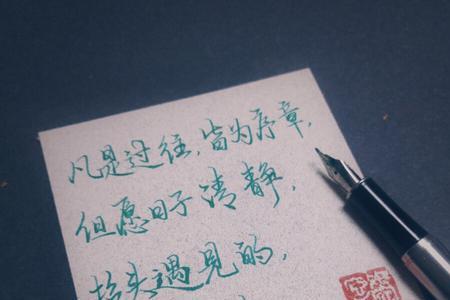 凡是过往,皆为序章,
但愿日子清静,
抬头遇见的,